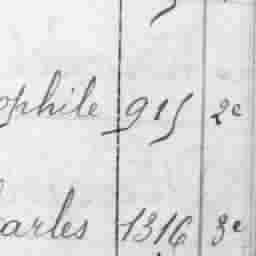 ophile 915 2e
arles 1316 3e